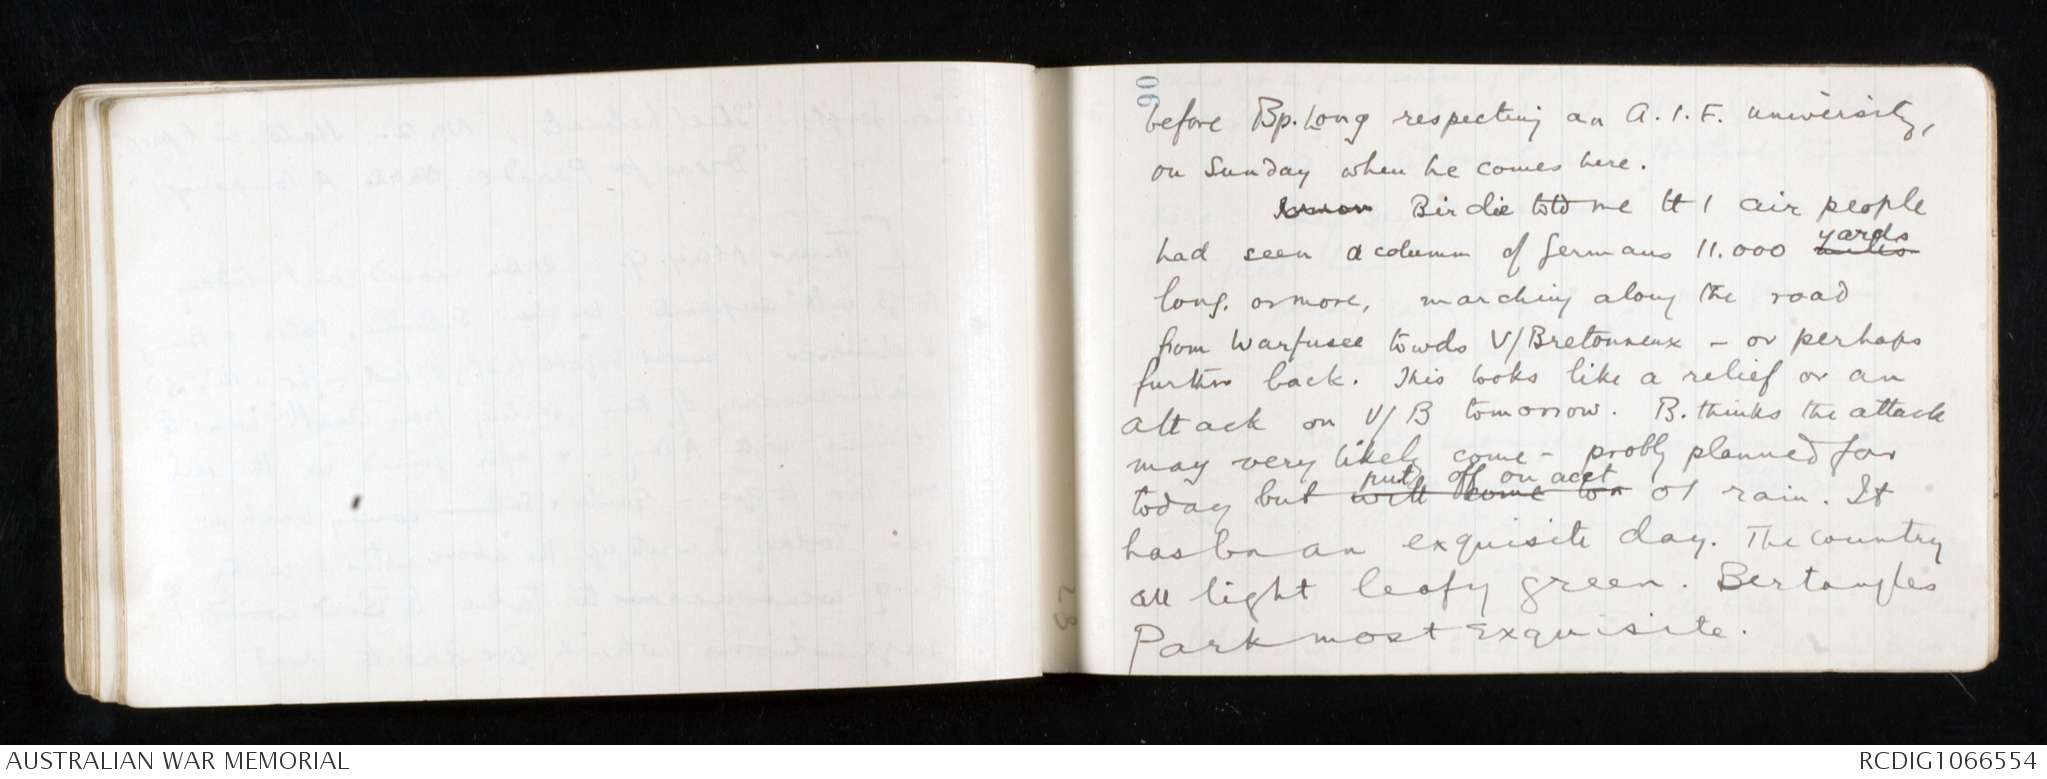 90
before Bp. Long respecting an A.I.F. university,
on Sunday when he comes here.
Birdie told me tt / air people
had seen a column of Germans 11.000 yards
long, or more, marching along the road
from Warfusee towds V/Bretonneux - or perhaps
further back. This looks like a relief or an
attack on V/B tomorrow. B. thinks the attack
may very likely come - probly planned for
today but put off on acct of rain. It
has bn an exquisite day. The country
all light leafy green. Bertangles
Park most exquisite.
AUSTRALIAN WAR MEMORIAL
RCDIG1066554